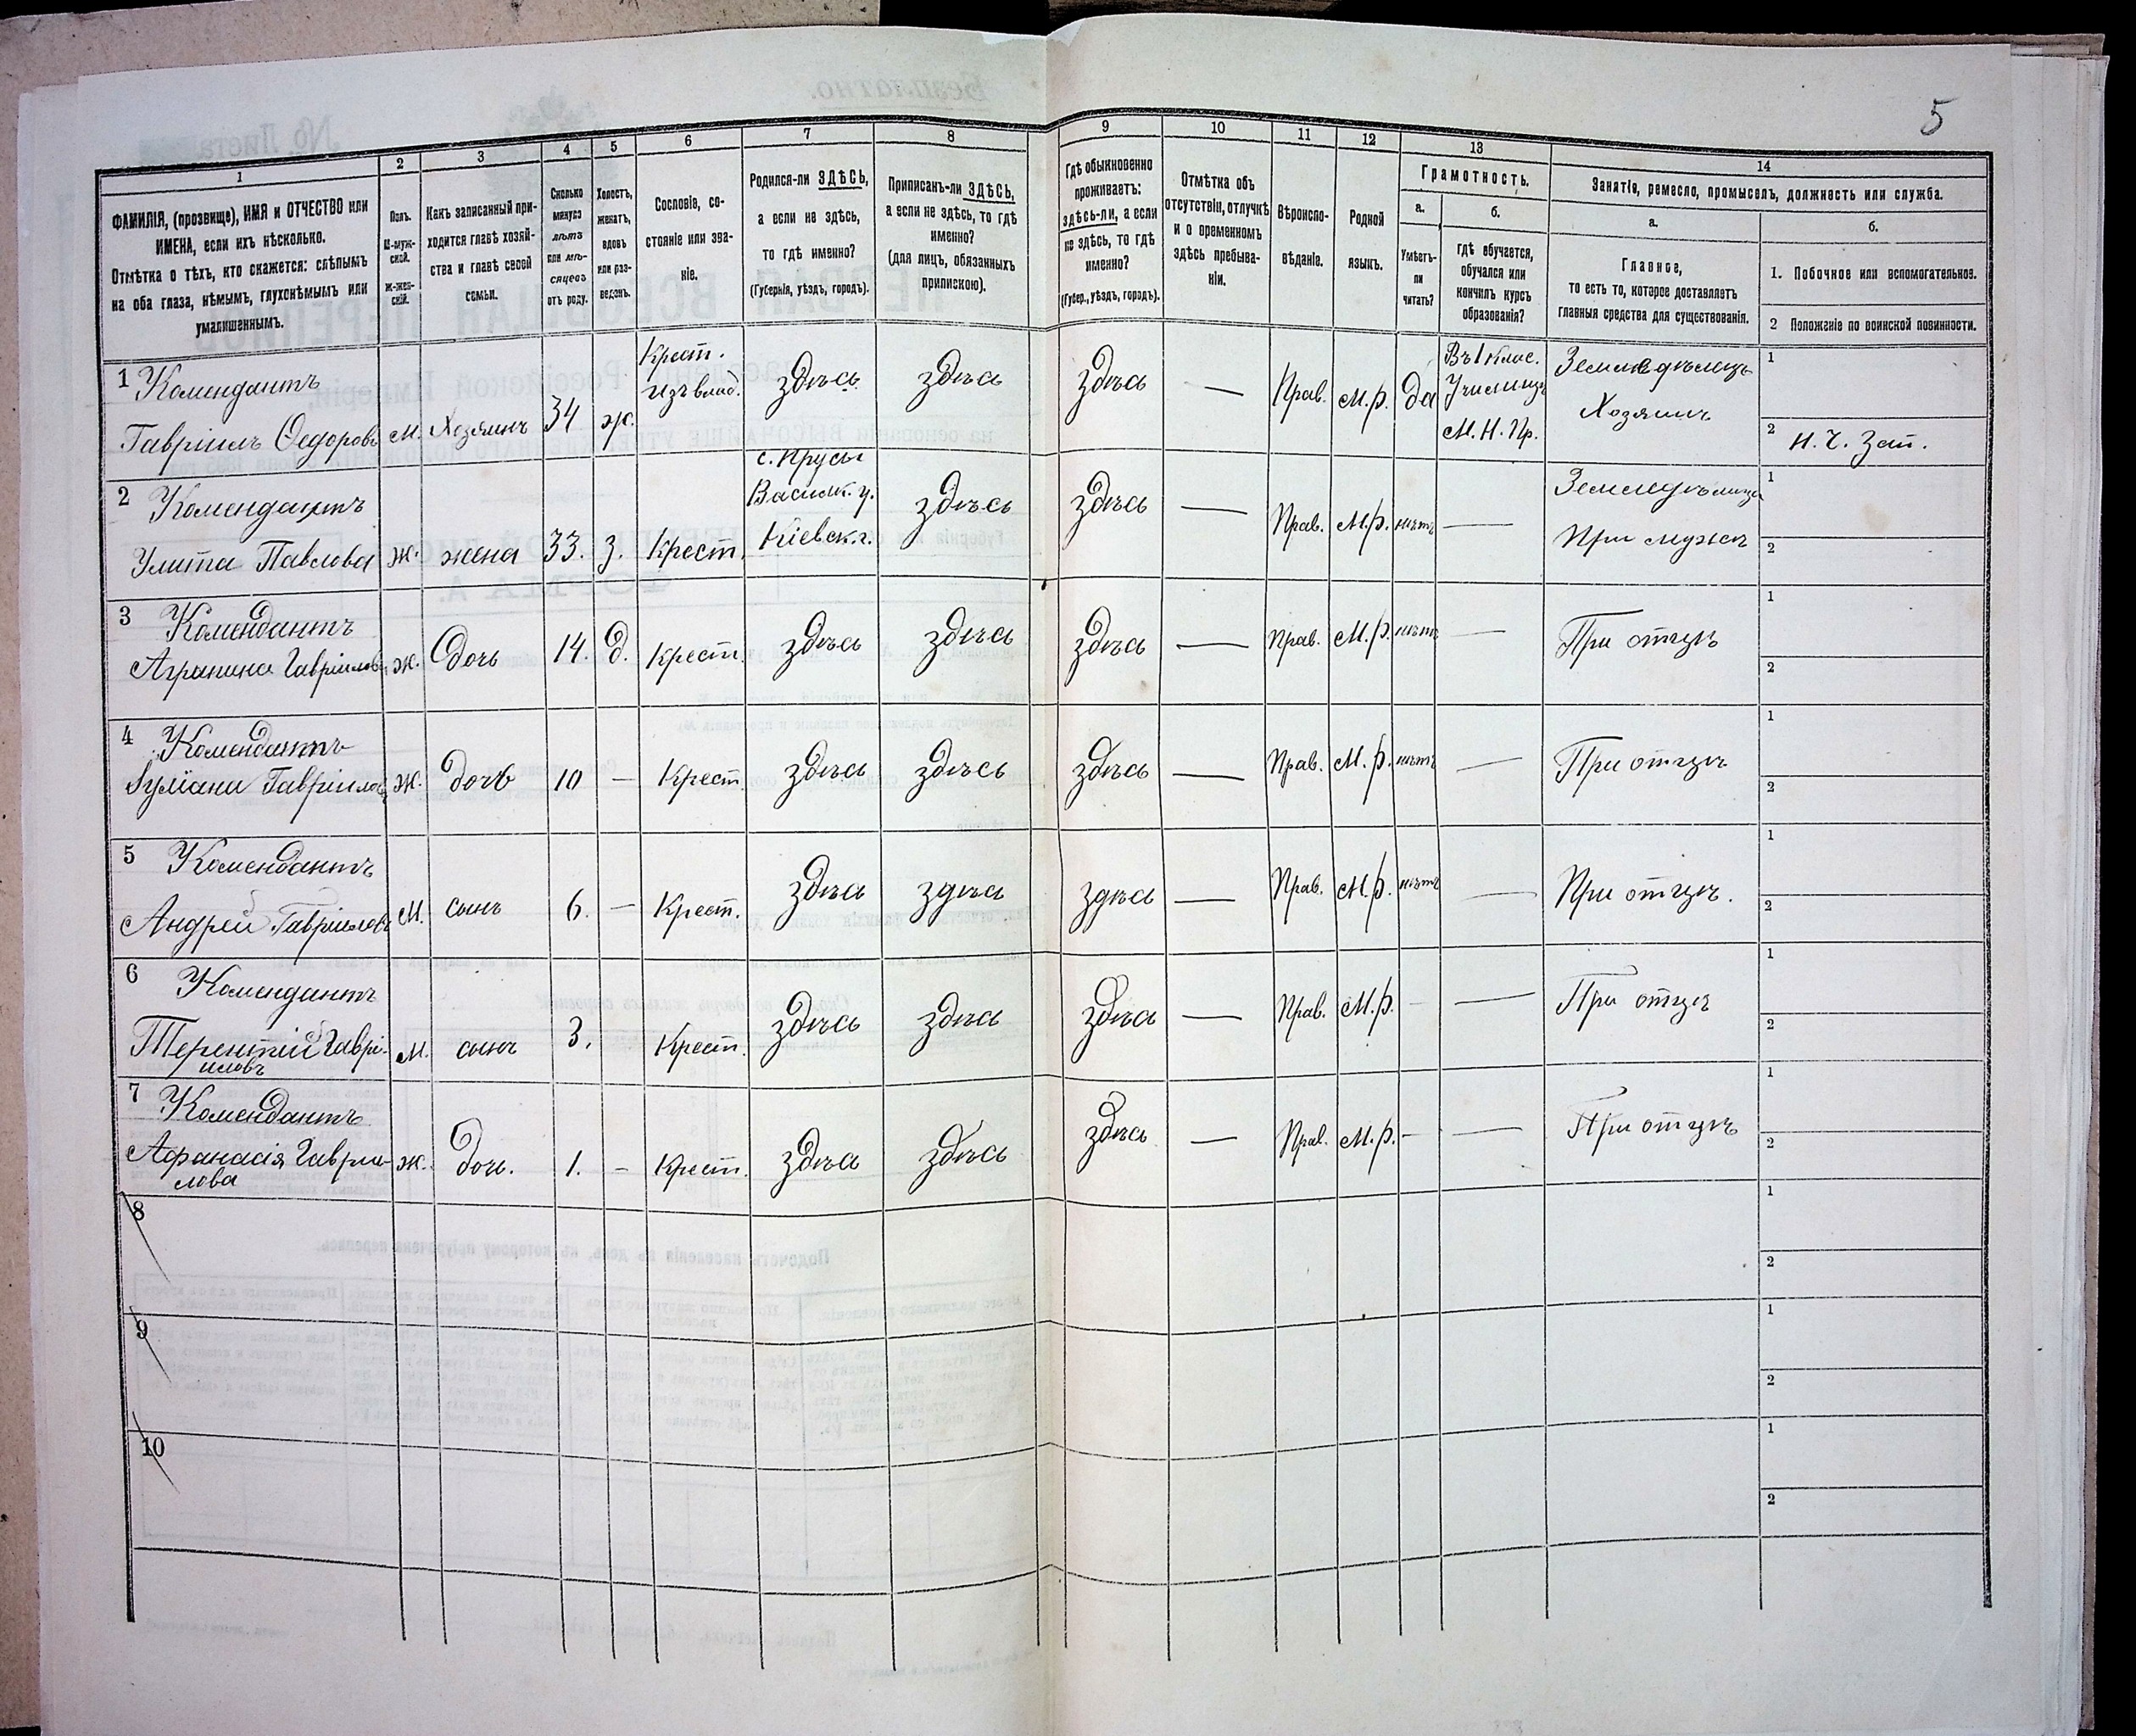 5
1
2
3
4
5
6
7
8
9
10
11
12
13
14
ФАМИЛІЯ, (прозвище), ИМЯ и ОТЧЕСТВО или
ИМЕНА, если ихъ нѣсколько.
Отмѣтка о тѣхъ, кто окажется: слѣпымъ
на оба глаза, нѣмымъ, глухонѣмымъ или
умалишеннымъ.
Полъ.
М-муж-
ской.
Ж-жен-
скій.
Какъ записанный при-
ходится главѣ хозяй-
ства и главѣ своей
семьи.
Сколько
минуло
лѣтъ
или мѣ-
сяцевъ
отъ роду.
Холостъ,
женатъ,
вдовъ
или раз-
веденъ.
Сословіе, со-
стояніе или зва-
ніе.
Родился-ли ЗДѢСЬ,
а если не здѣсь,
то гдѣ именно?
(Губернія, уѣздъ, городъ).
Приписанъ-ли ЗДѢСЬ,
а если не здѣсь, то гдѣ
именно?
(для лицъ, обязанныхъ
припискою).
Гдѣ обыкновенно
проживаетъ:
здѣсь-ли, а если
не здѣсь, то гдѣ
именно?
(Губер., уѣздъ, городъ).
Отмѣтка объ
отсутствіи, отлучкѣ
и о временномъ
здѣсь пребыва-
ніи.
Вѣроиспо-
вѣданіе.
Родной
языкъ.
Грамотность.
а.
б.
Умѣетъ-
ли
читать?
Гдѣ обучается,
обучался или
кончилъ курсъ
образованія?
Занятіе, ремесло, промыселъ, должность или служба.
а.
б.
Главное,
то есть то, которое доставляетъ
главныя средства для существованія.
1. Побочное или вспомогательное.
2 Положеніе по воинской повинности.
1 Комендантъ
Гавріилъ Ѳедоровъ
м.
Хозяинъ
34
ж.
Крест.
изъ влад.
здѣсь
здѣсь
здѣсь
—
Прав.
М.р.
да
Въ 1 клас.
Училищѣ
М. Н. Пр.
Земледѣлецъ
Хозяинъ
1
2 Н. Ч. Зап.
2 Комендантъ
Улита Павлова
ж.
жена
33.
з.
Крест.
с. Прусы
Васильк. у.
Кіевск. г.
здѣсь
здѣсь
—
Прав.
М.р.
нѣтъ
—
При мужѣ
1
2
3 Комендантъ
Агрипина Гавріилова
ж.
Дочь
14.
д.
Крест.
здѣсь
здѣсь
здѣсь
—
Прав.
М.р.
нѣтъ
—
При отцѣ
1
2
4 Комендантъ
Іуліана Гавріилова
ж.
дочь
10
—
Крест
здѣсь
здѣсь
здѣсь
—
Прав.
М.р.
нѣтъ
—
При отцѣ
1
2
5 Комендантъ
Андрей Гавріиловъ
м.
сынъ
6.
—
Крест.
здѣсь
здѣсь
здѣсь
—
Прав.
М.р.
нѣтъ
—
При отцѣ.
1
2
6 Комендантъ
Терентій Гаврі-
иловъ
м.
сынъ
3.
Крест.
здѣсь
здѣсь
здѣсь
—
Прав.
М.р.
—
—
При отцѣ
1
2
7 Комендантъ
Афанасія Гаврии-
лова
ж.
дочь.
1.
—
Крест.
здѣсь
здѣсь
здѣсь
—
Прав.
М.р.
—
—
При отцѣ
1
2
8
1
2
9
1
2
10
1
2